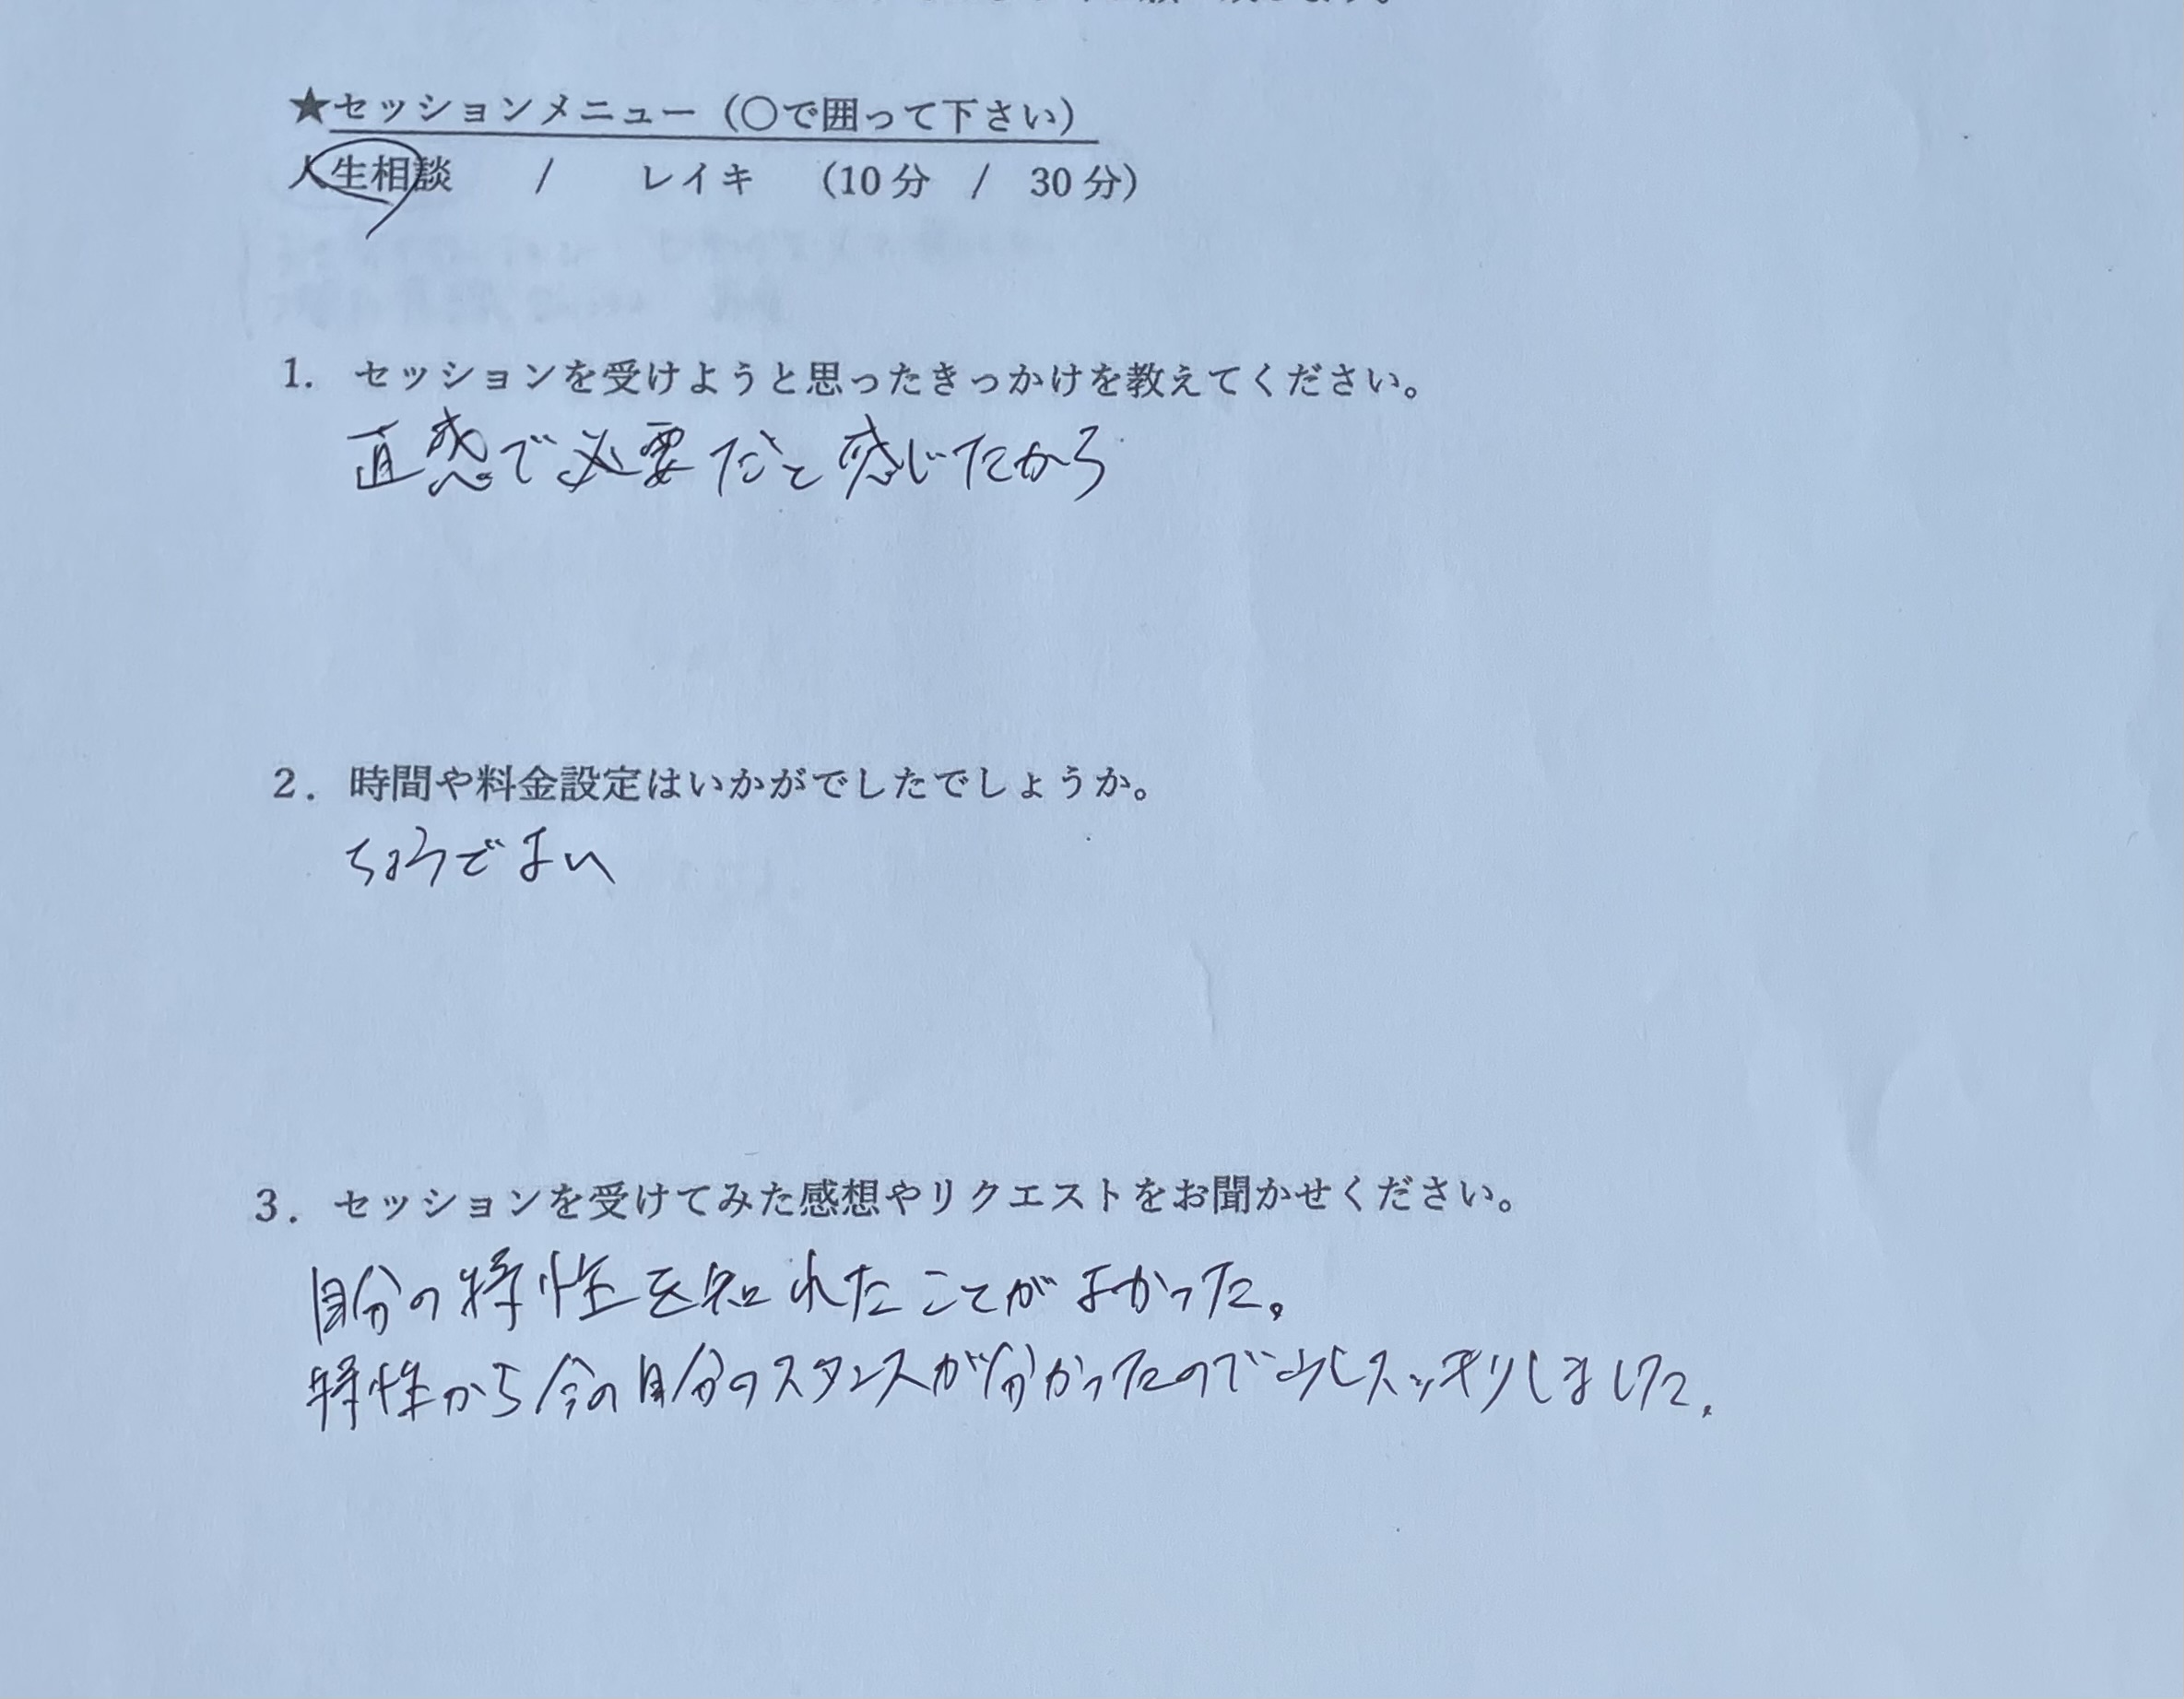 ★セッションメニュー（〇で囲って下さい）
人生相談　/　レイキ　（10分　/　30分）
1. セッションを受けようと思ったきっかけを教えてください。
直感で必要だと感じたから
2. 時間や料金設定はいかがでしたでしょうか。
ちょうどよい
3. セッションを受けてみた感想やリクエストをお聞かせください。
自分の特性を知れたことがよかった。
特性から今の自分のスタンスが分かったので少しスッキリしました.